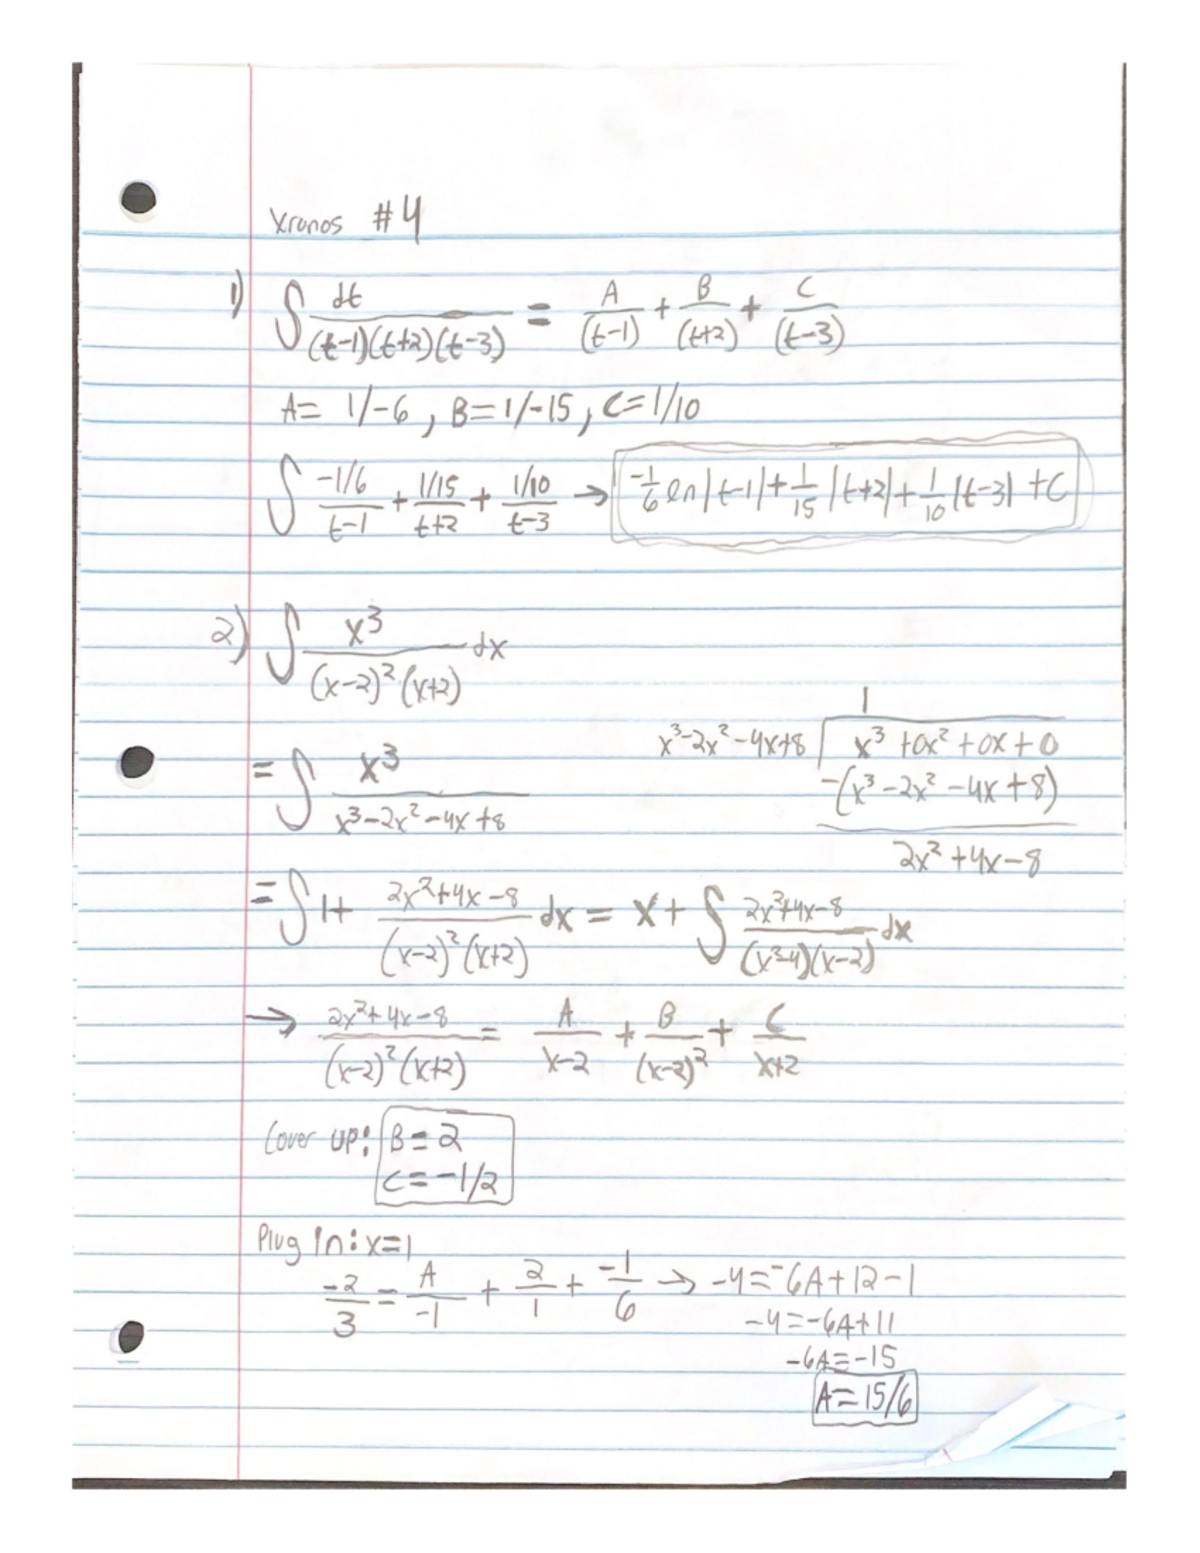 Xronos #4
1) ∫ dt/((t-1)(t+2)(t-3)) = A/(t-1) + B/(t+2) + C/(t-3)
A= 1/-6, B=1/-15, C=1/10
∫ (-1/6)/(t-1) + (1/15)/(t+2) + (1/10)/(t-3) → -1/6 ln|t-1| + 1/15 |t+2| + 1/10 |t-3| + C
2) ∫ x³/((x-2)²(x+2)) dx
= ∫ x³/(x³-2x²-4x+8)
1
x³-2x²-4x+8 | x³+0x²+0x+0
-(x³-2x²-4x+8)
2x²+4x-8
= ∫ 1+ (2x²+4x-8)/((x-2)²(x+2)) dx = x+ ∫ (2x²+4x-8)/((x²-4)(x-2)) dx
→ (2x²+4x-8)/((x-2)²(x+2)) = A/(x-2) + B/(x-2)² + C/(x+2)
Cover up: B=2
C=-1/2
Plug in: x=1
-2/3 = A/-1 + 2/1 + -1/6 → -4=-6A+12-1
-4=-6A+11
-6A=-15
A=15/6